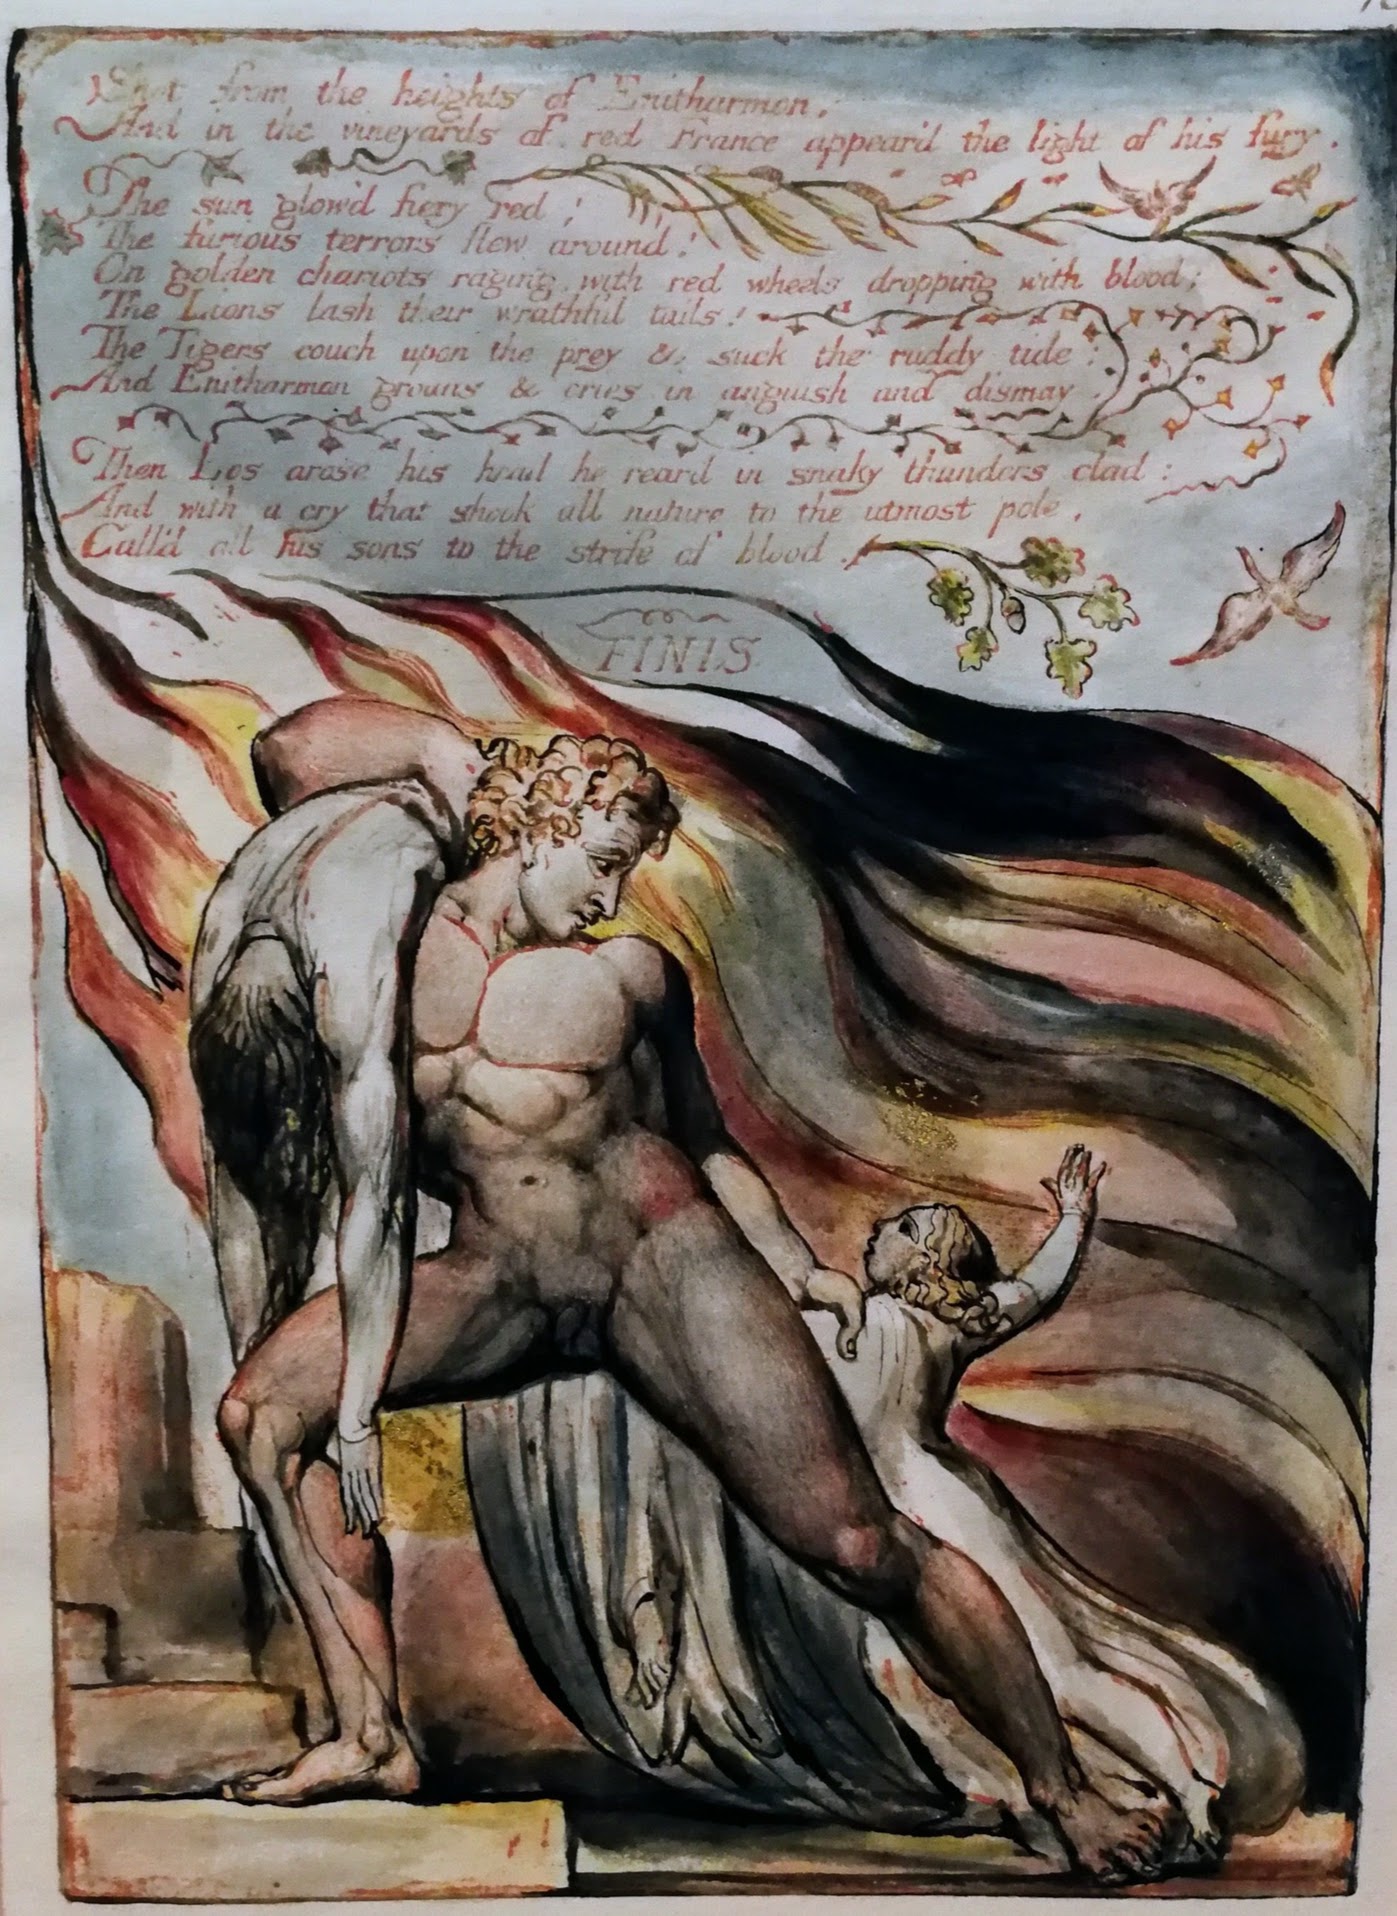 Shot from the heights of Enitharmon;
And in the vineyards of red France appear'd the light of his fury.
The sun glow'd fiery red;
The furious terrors flew around!
On golden chariots raging, with red wheels dropping with blood;
The Lions lash their wrathful tails!
The Tigers couch upon the prey & suck the ruddy tide:
And Enitharmon groans & cries in anguish and dismay.
Then Los arose his head he reard in snaky thunders clad:
And with a cry that shook all nature to the utmost pole,
Call'd all his sons to the strife of blood.
FINIS